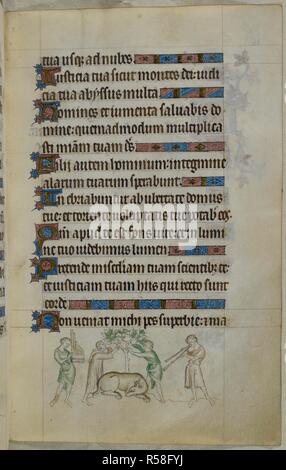 tua usq; ad nubes
Iusticia tua sicut montes dei: iudi
cia tua abyssus multa
Homines et iumenta saluabis do
mine: quemadmodum multiplica
sti mīam tuam ds̄
Filii autem hominum: in tegmine
alarum tuarum sperabunt
Inebriabuntur ab ubertate domus
tue: et torrente uoluptatis tue potabis
Qm̄ apud te est fons uite: et in lumi
ne tuo uidebimus lumen
Pretende miscdiam tuam scientib; te:
et iusticiam tuam hiis qui recto sunt
corde
Non ueniat michi pes superbie: et ma
alamy
Image ID: R58FYJ
www.alamy.com